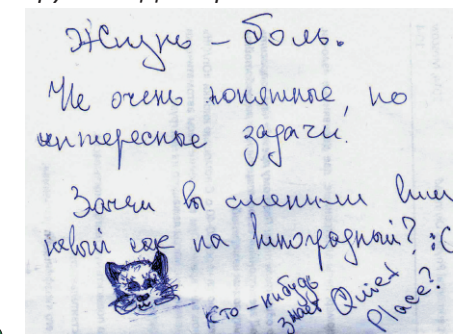 Жизнь – боль.
Не очень понятные, но
интересные задачи.
Зачем вы сменили виш
нёвый сок на виноградный? :(
кто-нибудь
знает Quiet
Place?